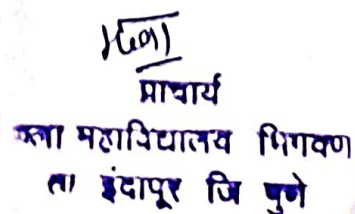 प्राचार्य
कला महाविद्यालय भिगवण
ता इंदापूर जि पुणे